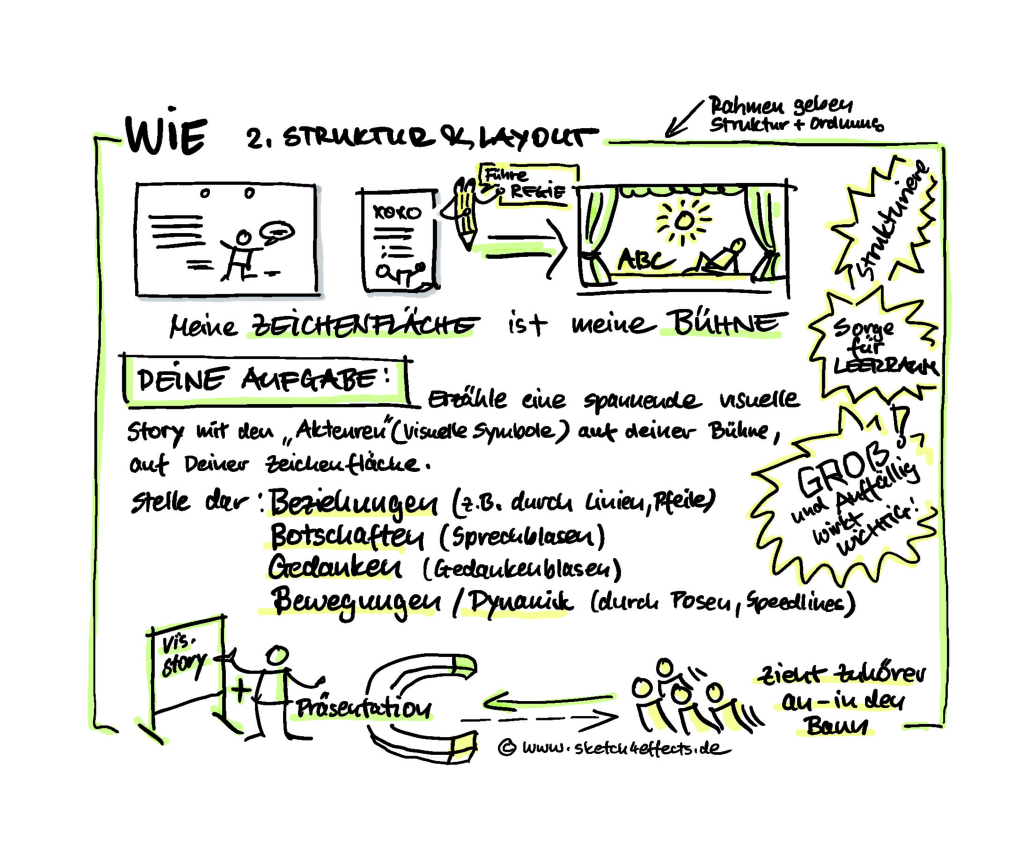 Rahmen geben
Struktur + Ordnung
WIE 2. STRUKTUR & LAYOUT
Führe
REGIE
XOXO
ABC
Strukturiere
Meine ZEICHENFLÄCHE ist meine BÜHNE
Sorge
für
LEERRAUM
DEINE AUFGABE:
Erzähle eine spannende visuelle
Story mit den „Akteuren" (visuelle Symbole) auf deiner Bühne,
auf Deiner Zeichenfläche.
GROß!
und Auffällig
wirkt
wichtig!
Stelle dar: Beziehungen (z.B. durch Linien, Pfeile)
Botschaften (Sprechblasen)
Gedanken (Gedankenblasen)
Bewegungen / Dynamik (durch Posen, Speedlines)
Vis.
Story
+
Präsentation
zieht Zuhörer
an – in den
Bann
© www.sketch4effects.de